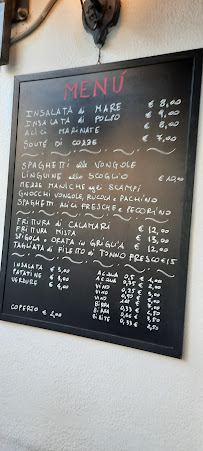 MENÚ
INSALATA di MARE € 8,00
INSALATA di POLPO € 9,00
ALICI MARINATE € 8,00
SOUTÉ DI COZZE € 7,00
SPAGHETTI alle VONGOLE
LINGUINE allo SCOGLIO € 10,00
MEZZE MANICHE agli SCAMPI
GNOCCHI VONGOLE, RUCOLA e PACHINO
SPAGHETTI ALICI FRESCHE e PECORINO
FRITTURA di CALAMARI € 12,00
FRITTURA MISTA € 13,00
SPIGOLA o ORATA in GRIGLIA € 12,00
TAGLIATA di FILETTO di TONNO FRESCO € 15
INSALATA € 3,00
PATATINE € 3,00
VERDURE € 4,00
ACQUA
ACQUA
VINO
VINO
VINO
BIRRA
BIRRA
BIBITE
COPERTO € 2,00